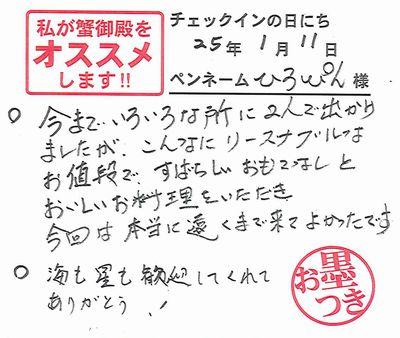 私が蟹御殿を
オススメ
します!!
チェックインの日にち
25年 1月 11日
ペンネーム ひろぴん 様
○ 今まで、いろいろな所に2人で出かけ
ましたが、こんなにリーズナブルな
お値段で、すばらしいおもてなしと
おいしいお料理をいただき
今回は本当に遠くまで来てよかったです
○ 海も星も歓迎してくれて
ありがとう!
お墨つき